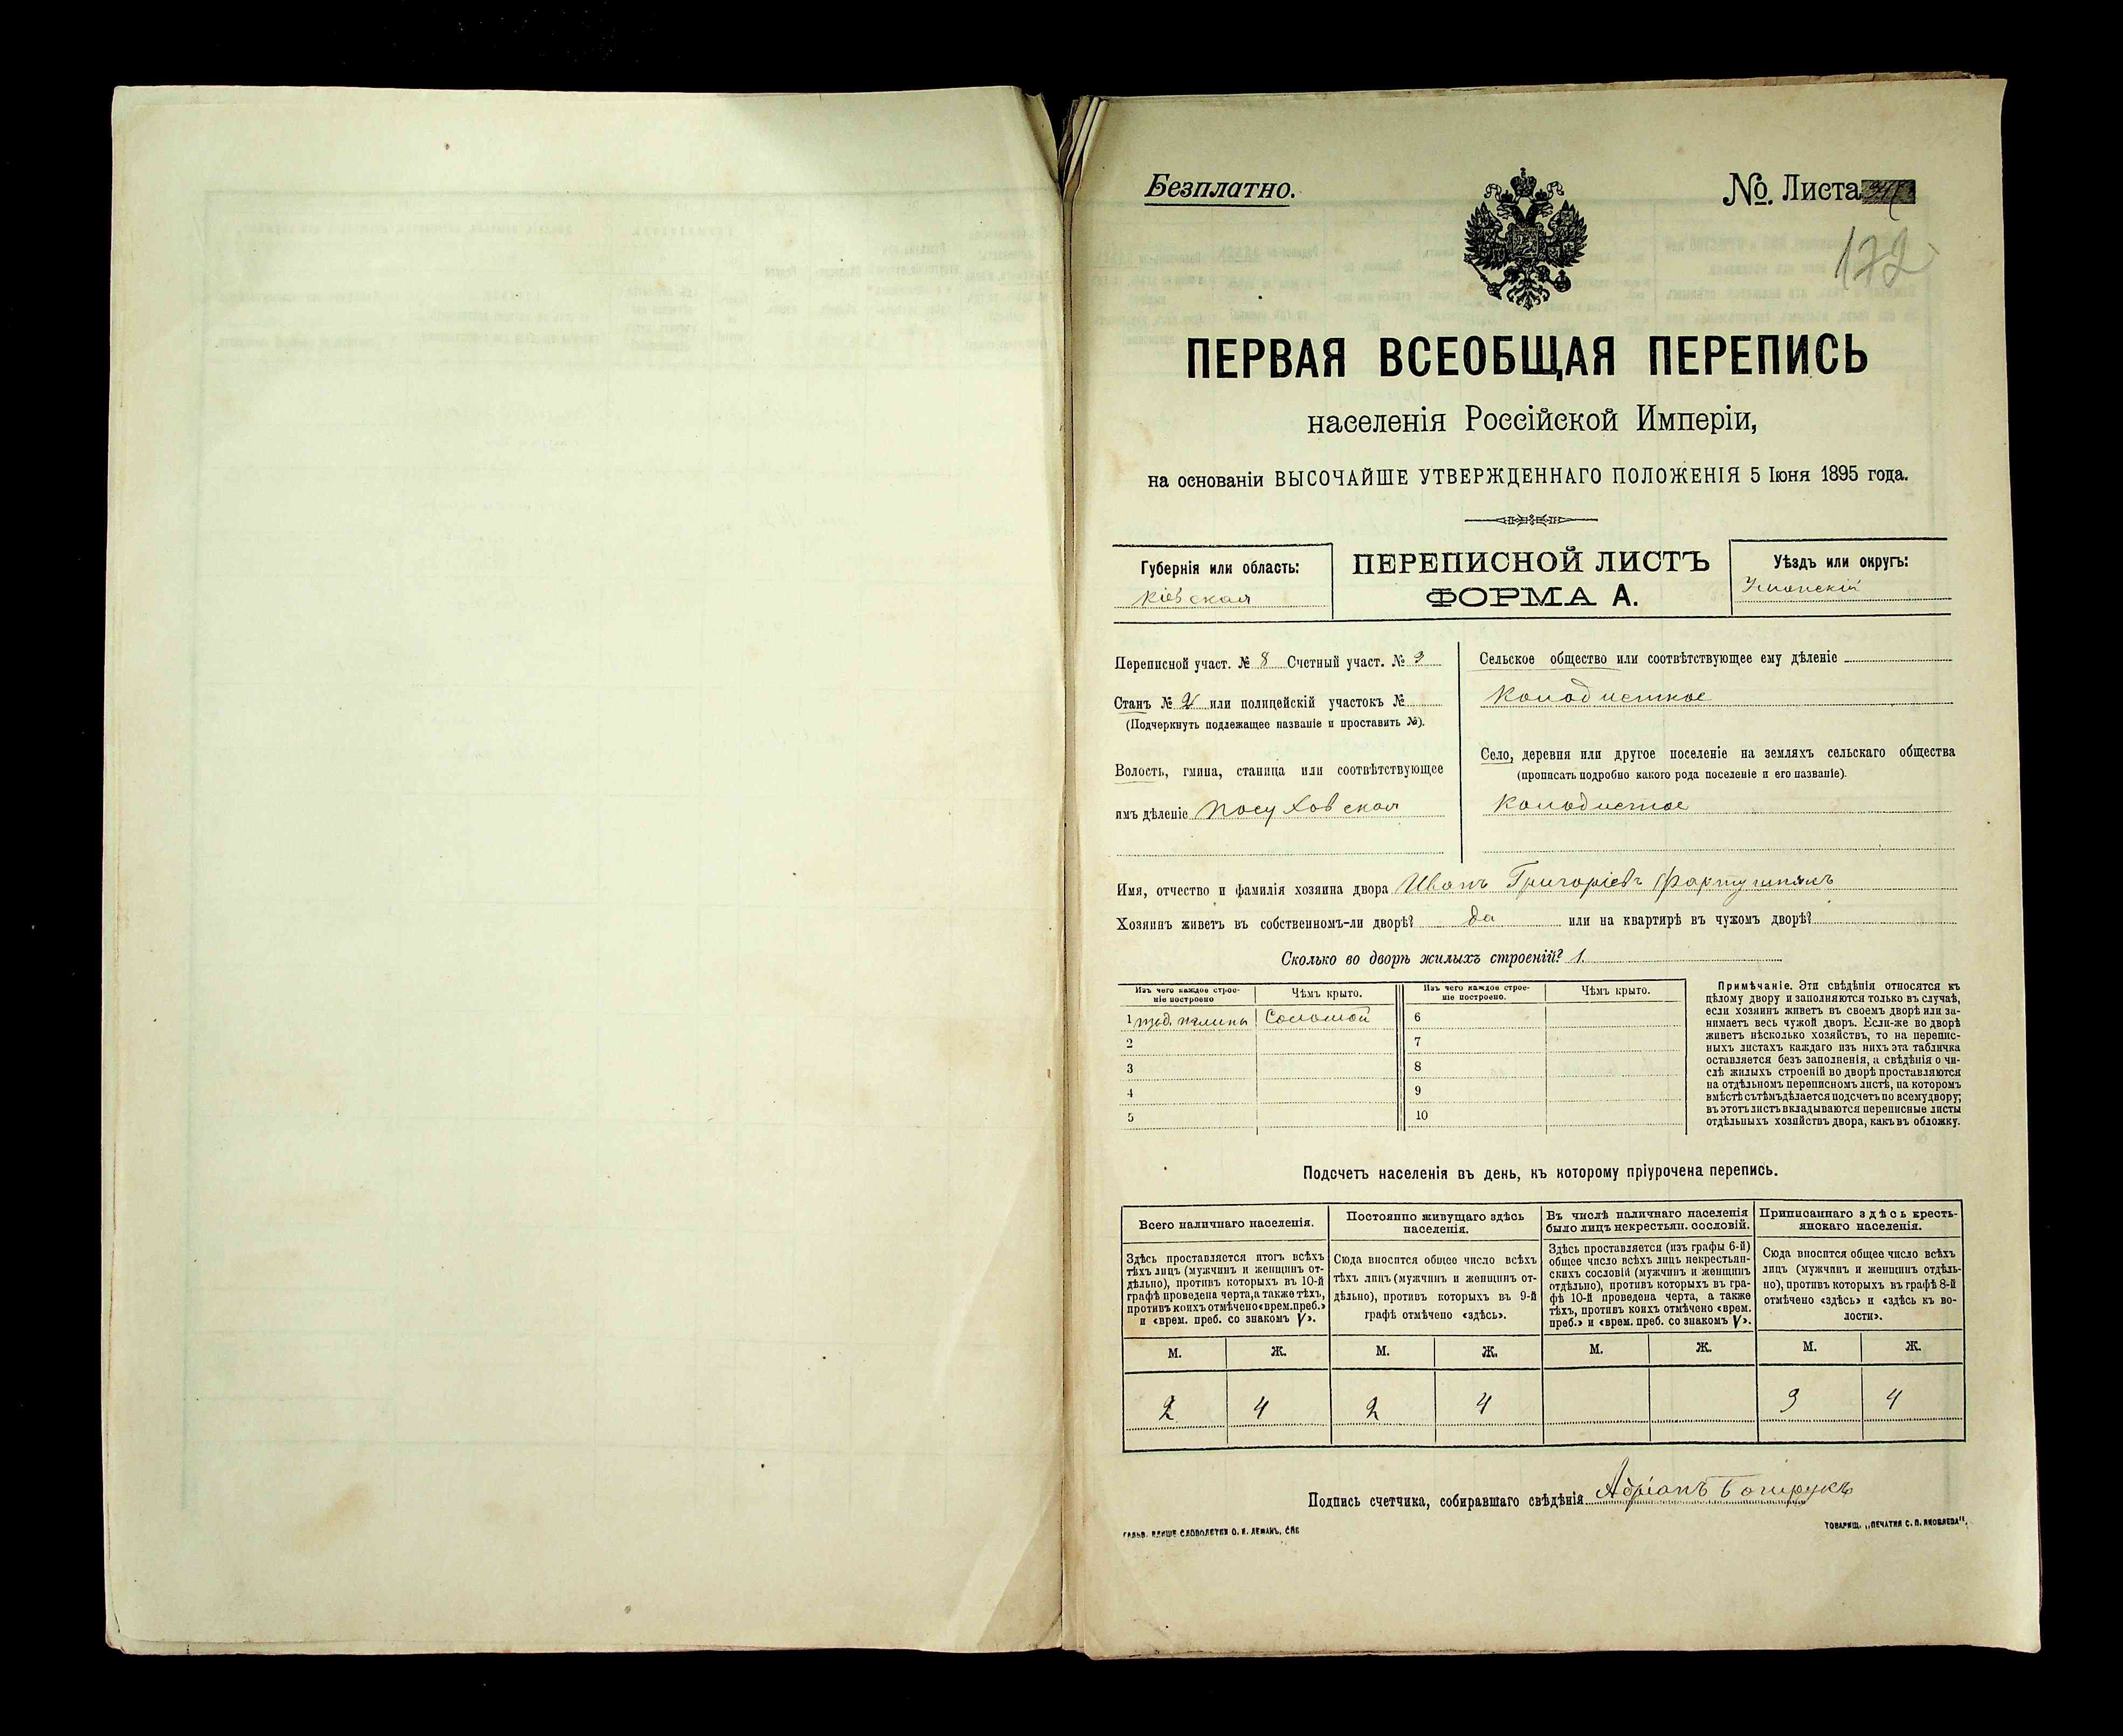 Безплатно.
№. Листа
172
ПЕРВАЯ ВСЕОБЩАЯ ПЕРЕПИСЬ
населенія Россійской Имперіи,
на основаніи ВЫСОЧАЙШЕ УТВЕРЖДЕННАГО ПОЛОЖЕНІЯ 5 Іюня 1895 года.
Губернія или область:
Кіевская
ПЕРЕПИСНОЙ ЛИСТЪ
ФОРМА А.
Уѣздъ или округъ:
Уманскій
Переписной участ. № 8 Счетный участ. № 3
Станъ № 2 или полицейскій участокъ №
(Подчеркнуть подлежащее названіе и проставить №).
Волость, гмина, станица или соотвѣтствующее
имъ дѣленіе Посуховская
Сельское общество или соотвѣтствующее ему дѣленіе
Колодистное
Село, деревня или другое поселеніе на земляхъ сельскаго общества
(прописать подробно какого рода поселеніе и его названіе).
Колодистое
Имя, отчество и фамилія хозяина двора Иванъ Григоріевъ Фартушнякъ
Хозяинъ живетъ въ собственномъ-ли дворѣ? да или на квартирѣ въ чужомъ дворѣ?
Сколько во дворѣ жилыхъ строеній? 1.
Изъ чего каждое строе-
ніе построено
Чѣмъ крыто.
Изъ чего каждое строе-
ніе построено.
Чѣмъ крыто.
1 Соломой 6
2 7
3 8
4 9
5 10
Примѣчаніе. Эти свѣдѣнія относятся къ
цѣлому двору и заполняются только въ случаѣ,
если хозяинъ живетъ въ своемъ дворѣ или за-
нимаетъ весь чужой дворъ. Если-же во дворѣ
живетъ нѣсколько хозяйствъ, то на перепис-
ныхъ листахъ каждаго изъ нихъ эта табличка
оставляется безъ заполненія, а свѣдѣнія о чи-
слѣ жилыхъ строеній во дворѣ проставляются
на отдѣльномъ переписномъ листѣ, на которомъ
вмѣстѣ съ тѣмъ дѣлается подсчетъ по всему двору;
въ этотъ листъ вкладываются переписные листы
отдѣльныхъ хозяйствъ двора, какъ въ обложку.
Подсчетъ населенія въ день, къ которому пріурочена перепись.
Всего наличнаго населенія.
Здѣсь проставляется итогъ всѣхъ
тѣхъ лицъ (мужчинъ и женщинъ от-
дѣльно), противъ которыхъ въ 10-й
графѣ проведена черта, а также тѣхъ,
противъ коихъ отмѣчено «врем. преб.»
и «врем. преб. со знакомъ V».
Постоянно живущаго здѣсь
населенія.
Сюда вносится общее число всѣхъ
тѣхъ лицъ (мужчинъ и женщинъ от-
дѣльно), противъ которыхъ въ 9-й
графѣ отмѣчено «здѣсь».
Въ числѣ наличнаго населенія
было лицъ некрестьян. сословій.
Здѣсь проставляется (изъ графы 6-й)
общее число всѣхъ лицъ некрестьян-
скихъ сословій (мужчинъ и женщинъ
отдѣльно), противъ которыхъ въ гра-
фѣ 10-й проведена черта, а также
тѣхъ, противъ коихъ отмѣчено «врем.
преб.» и «врем. преб. со знакомъ V».
Приписаннаго здѣсь кресть-
янскаго населенія.
Сюда вносится общее число всѣхъ
лицъ (мужчинъ и женщинъ отдѣль-
но), противъ которыхъ въ графѣ 8-й
отмѣчено «здѣсь» и «здѣсь къ во-
лости».
М. Ж. М. Ж. М. Ж. М. Ж.
2 4 2 4 3 4
Подпись счетчика, собиравшаго свѣдѣнія Адріанъ
ГАЛЬВ. КЛИШЕ СЛОВОЛИТНИ О. И. ЛЕМАНЪ, СПБ
ТОВАРИЩ. „ПЕЧАТНЯ С. П. ЯКОВЛЕВА".